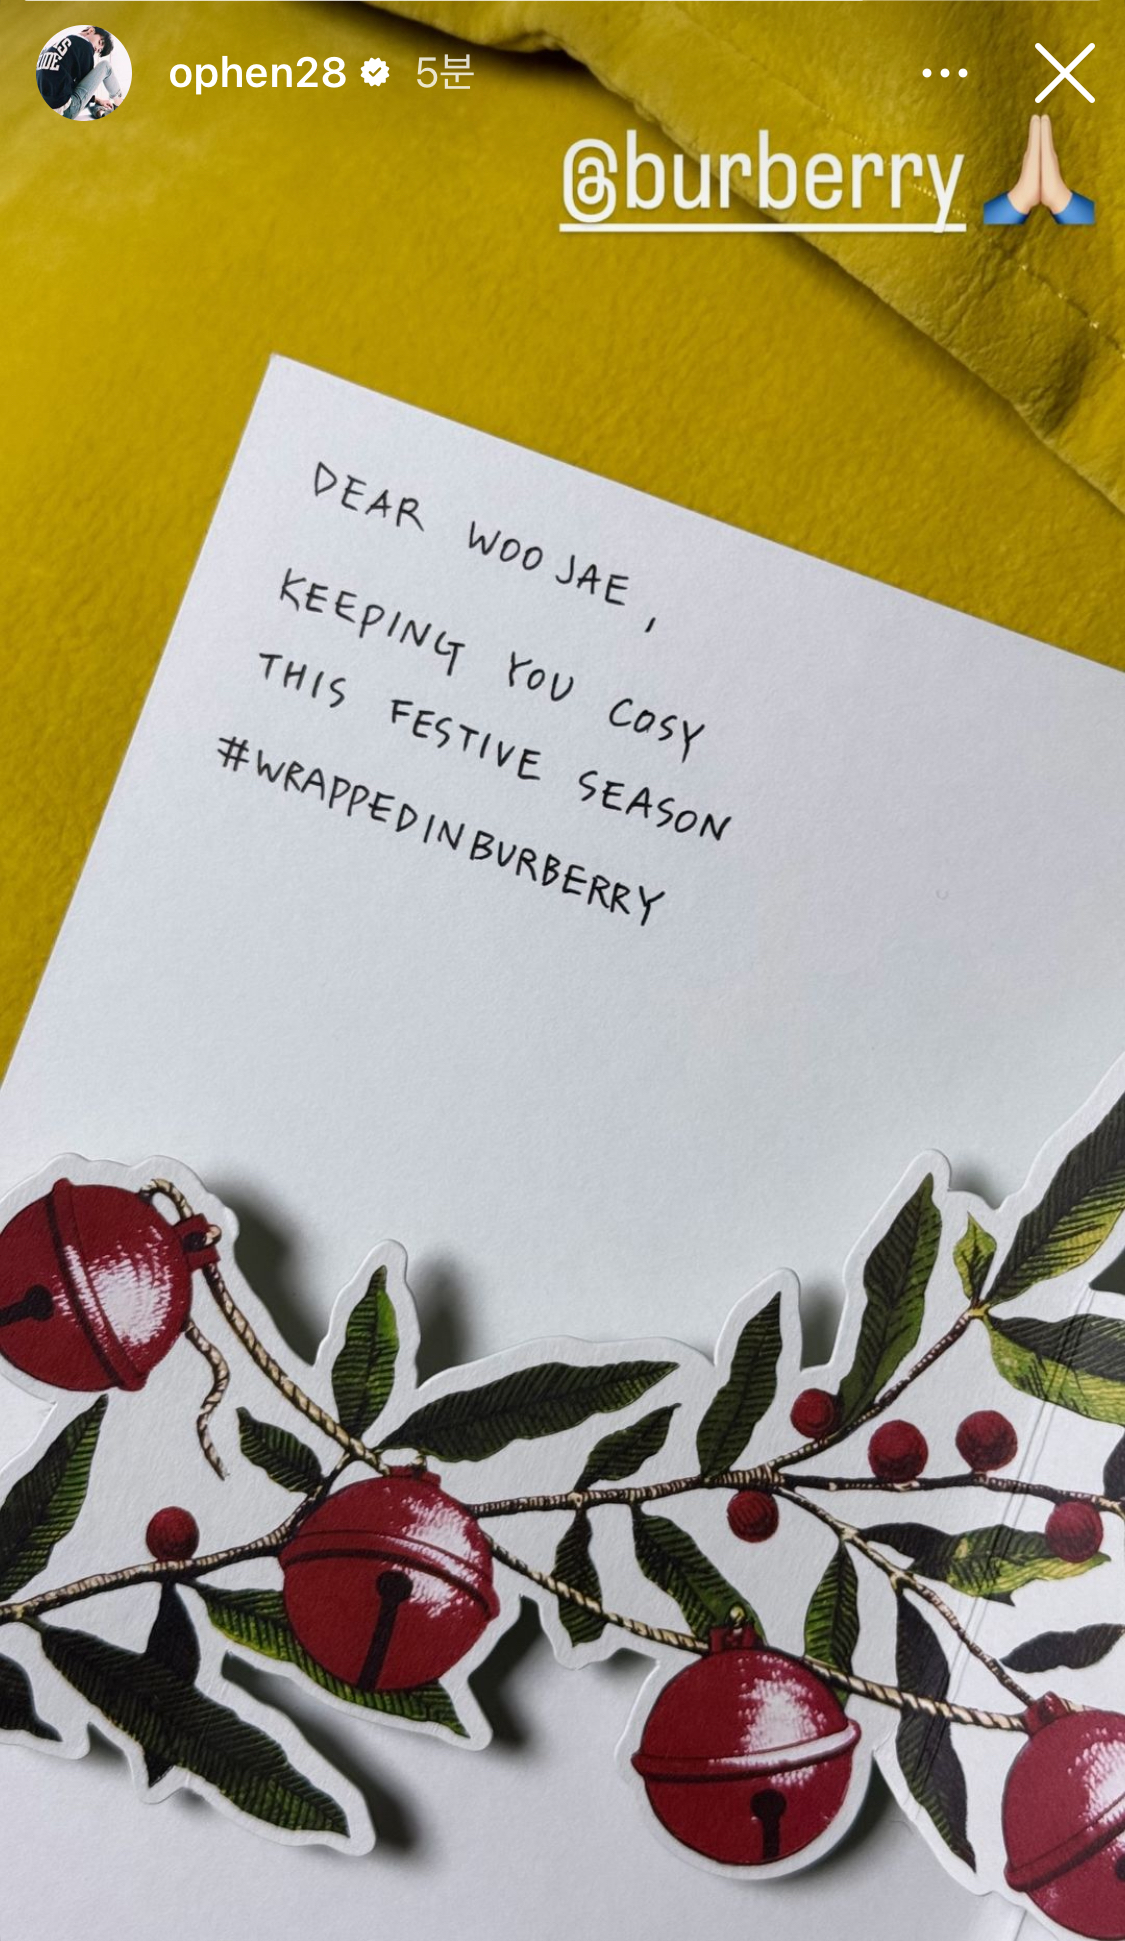 ophen28 5분
@burberry
DEAR WOOJAE,
KEEPING YOU COSY
THIS FESTIVE SEASON
#WRAPPEDINBURBERRY